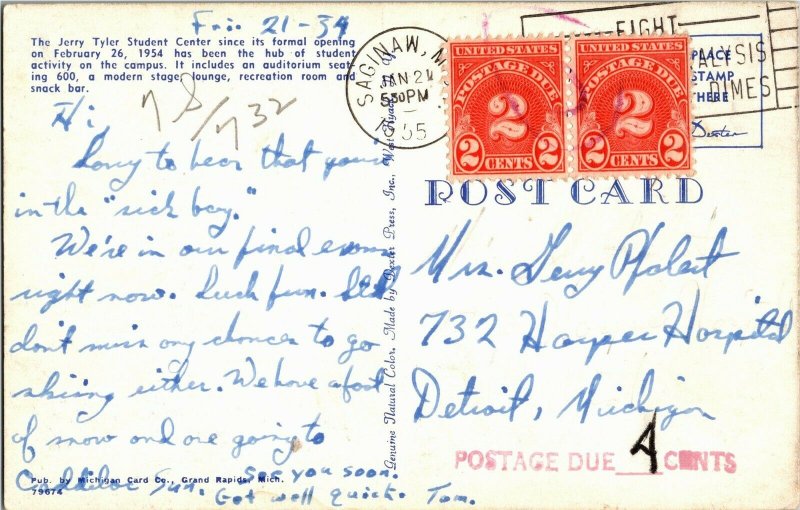 Fri. 21-34
The Jerry Tyler Student Center since its formal opening
on February 26, 1954 has been the hub of student
activity on the campus. It includes an auditorium seat-
ing 600, a modern stage, lounge, recreation room and
snack bar.
Hi,
Sorry to hear that you're
in the "sick bay."
We're in our final exams
right now. Such fun.
don't miss any chances to go
skiing either. We have a foot
of snow and are going to
Cadillac Sun. See you soon.
Get well quick. Tom.
Pub. by Michigan Card Co., Grand Rapids, Mich.
79674
Genuine Natural Color. Made by Dexter Press, Inc., West Nyack, N. Y.
SAGINAW, M
JAN 21
5 30 PM
1955
FIGHT
ALYSIS
DIMES
PLACE
STAMP
HERE
Dexter
UNITED STATES
POSTAGE DUE
2
2 CENTS 2
UNITED STATES
POSTAGE DUE
2
2 CENTS 2
POST CARD
Mrs. Gerry
732 Harper Hospital
Detroit, Michigan
POSTAGE DUE 4 CENTS